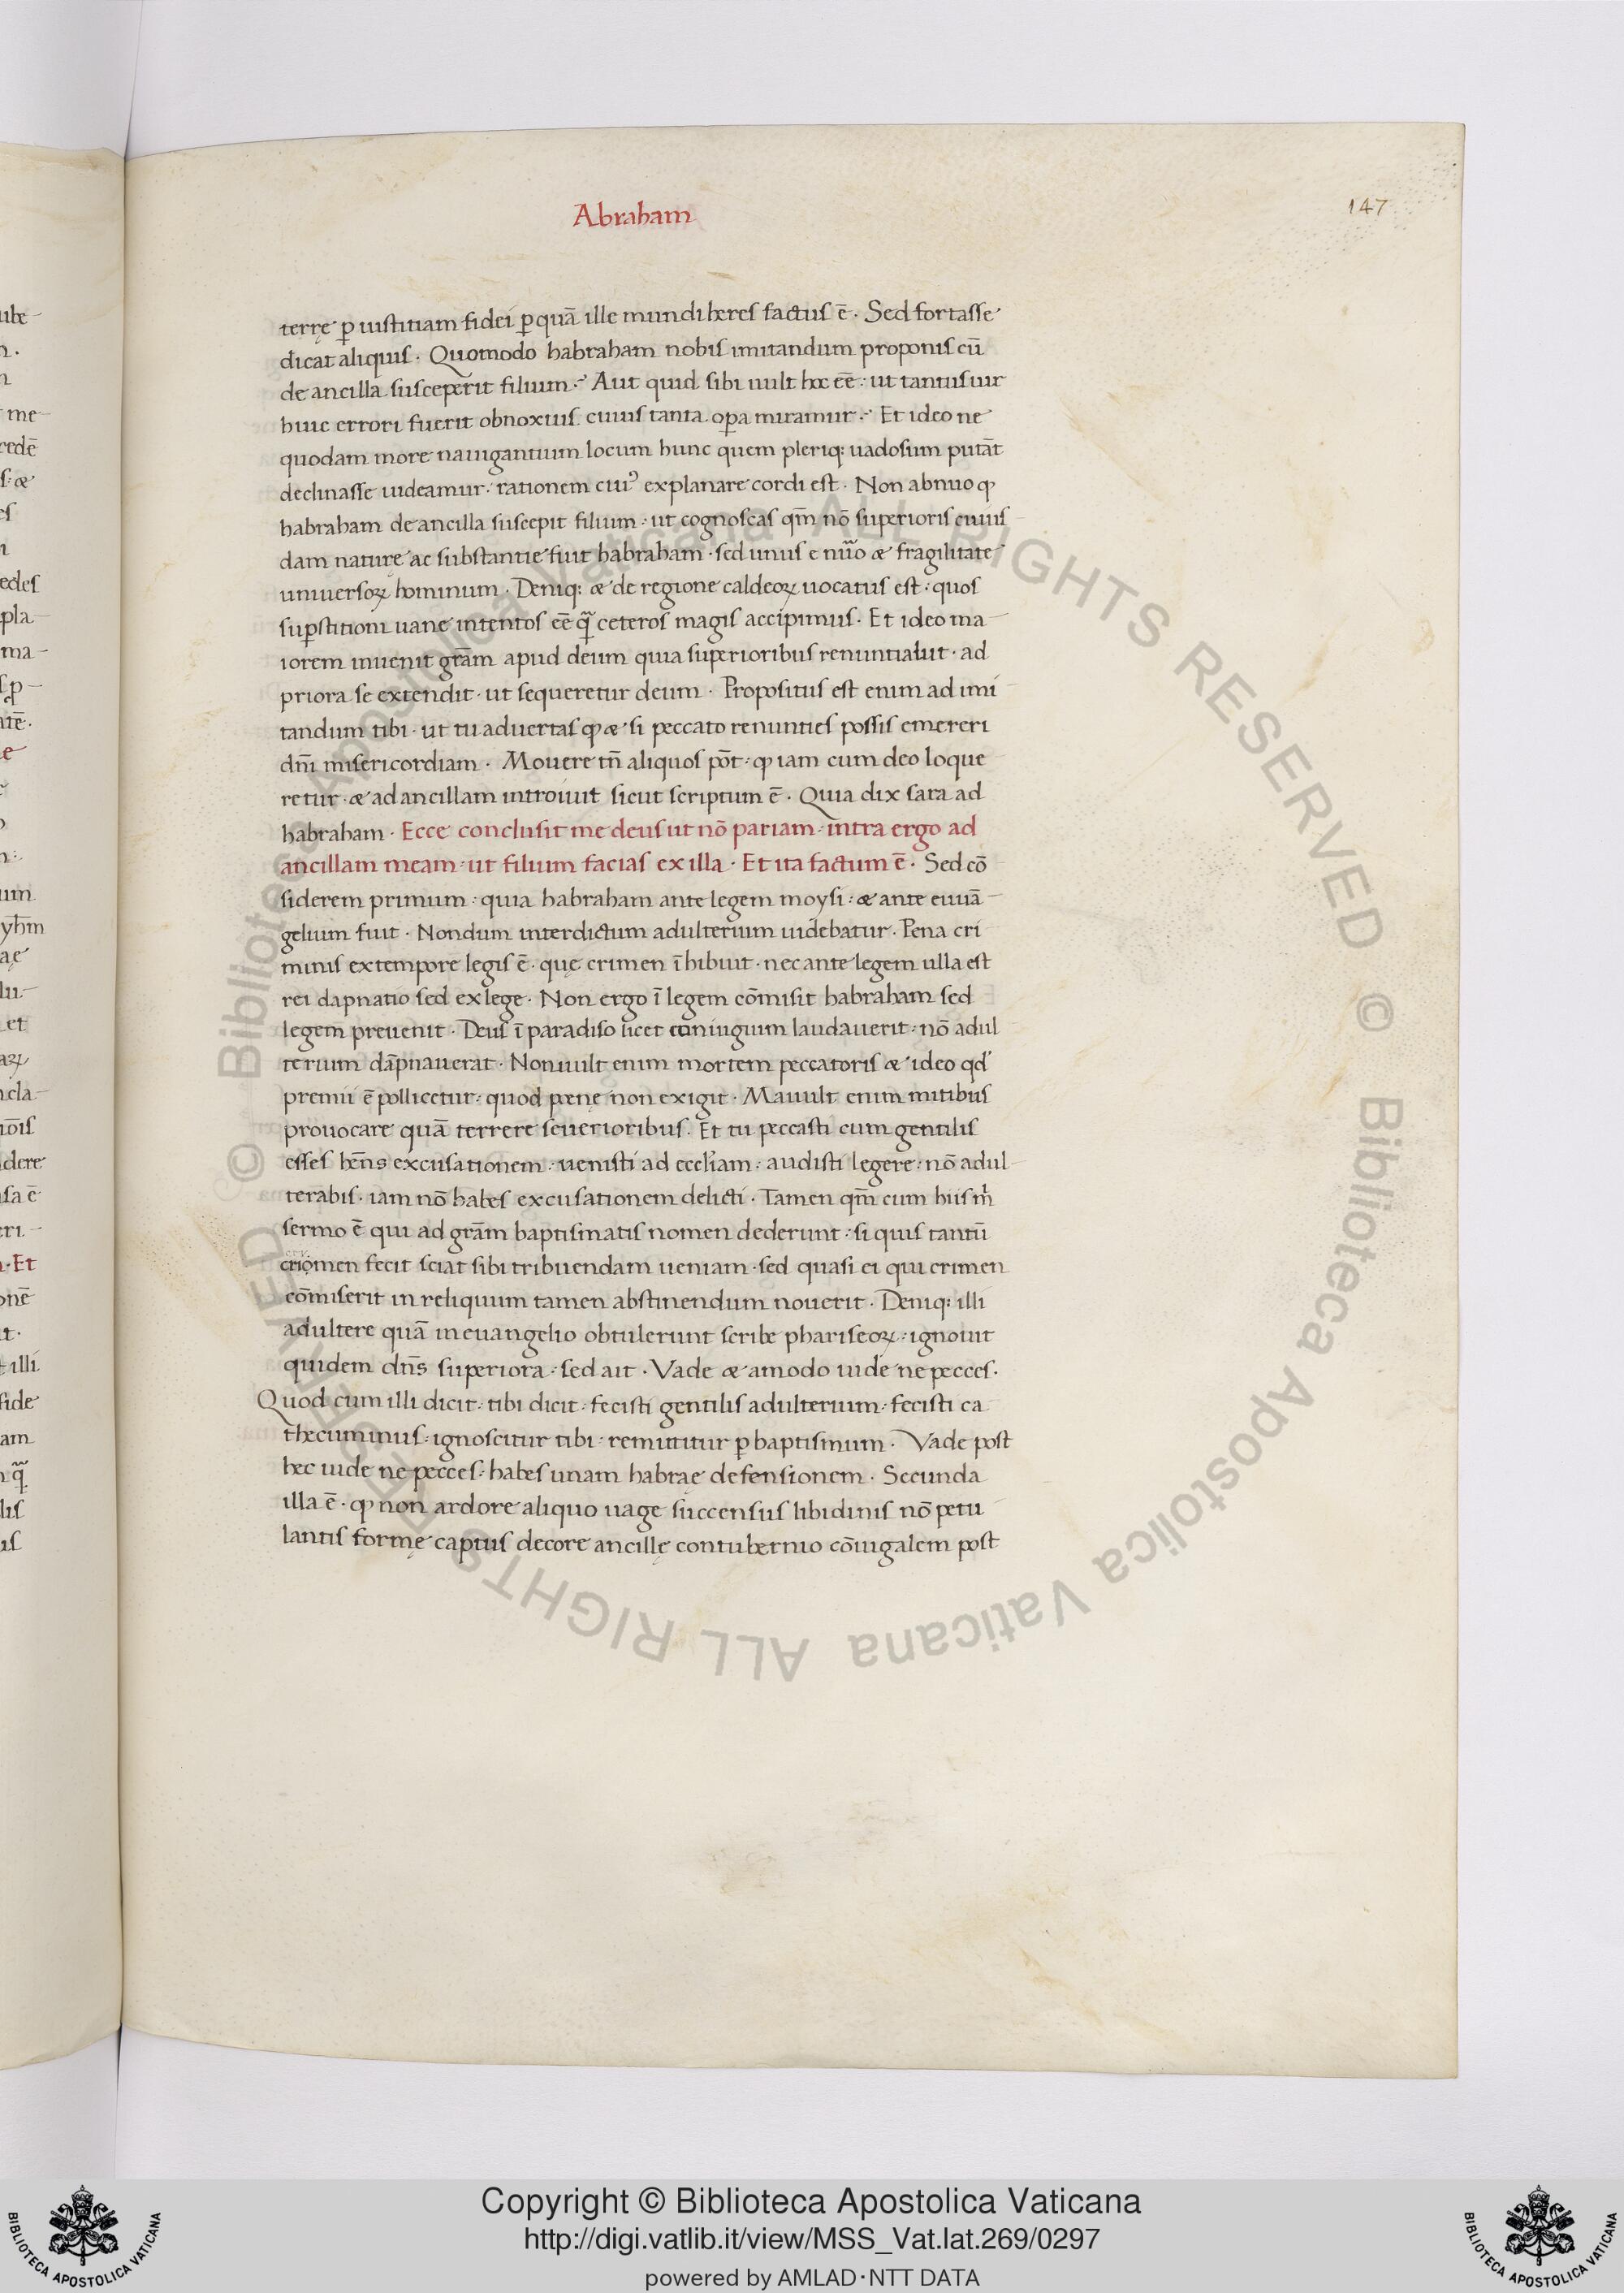 Abraham
147
terrę ꝑ iustitiam fidei ꝑ quā ille mundi heres factus ē. Sed fortasse
dicat aliquis. Quomodo habraham nobis imitandum proponis cū
de ancilla susceperit filium. Aut quid sibi uult hoc eē: ut tantus uir
huic errori fuerit obnoxius cuius tanta oꝑa miramur. Et ideo ne
quodam more nauigantium locum hunc quem pleriq: uadosum putāt
declinasse uideamur. rationem cui᾽ explanare cordi est. Non abnuo ꝙ
habraham de ancilla suscepit filium: ut cognoscas qm̄ nō superioris cuius
dam naturę ac substantie fuit habraham. sed unus e nūo æ fragilitate
uniuersoꝝ hominum. Deniq: æ de regione caldeoꝝ uocatus est: quos
suꝑstitioni uane intentos eē q̄ ceteros magis accipimus. Et ideo ma
iorem inuenit grām apud deum quia superioribus renuntiabit. ad
priora se extendit. ut sequeretur deum. Propositus est enim ad imi
tandum tibi. ut tu aduertas ꝙ æ si peccato renunties possis emereri
dn̄i misericordiam. Mouere tn̄ aliquos pōt. ꝙ iam cum deo loque
retur. æ ad ancillam introiuit sicut scriptum ē. Quia dix sara ad
habraham. Ecce conclusit me deus ut nō pariam. intra ergo ad
ancillam meam: ut filium facias ex illa. Et ita factum ē. Sed cō
siderem primum: quia habraham ante legem moysi: æ ante euuā
gelium fuit. Nondum interdictum adulterium uidebatur. Pena cri
minis ex tempore legis ē. quę crimen īhibiut. nec ante legem ulla est
rei dapnatio sed ex lege. Non ergo ī legem cōmisit habraham sed
legem preuenit. Deus ī paradiso licet coniugium laudauerit: nō adul
terium dāpnauerat. Non uult enim mortem peccatoris æ ideo qd
premii ē pollicetur: quod poene non exigit. Mauult enim mitibus
prouocare quā terrere seuerioribus. Et tu peccasti cum gentilis
esses hēns excusationem: uenisti ad eccl'iam: audisti legere: nō adul
terabis. iam nō habes excusationem delicti. Tamen qm̄ cum huism̄
sermo ē qui ad grām baptismatis nomen dederunt: si quis tantū
criomen fecit sciat sibi tribuendam ueniam. sed quasi ei qui crimen
cōmiserit in reliquum tamen abstinendum nouerit. Deniq: illi
adultere quā in euangelio obtulerunt scribe phariseoꝝ: ignouit
quidem dn̄s superiora: sed ait. Vade æ amodo uide ne pecces.
Quod cum illi dicit: tibi dicit: fecisti gentilis adulterium: fecisti ca
thecuminus: ignoscitur tibi: remittitur ꝑ baptismum. Vade post
hec uide ne pecces: habes unam habraę defensionem. Secunda
illa ē. ꝙ non ardore aliquo uage succensus libidinis nō petu
lantis formę captus decore ancillę contubernio cōiugalem post
© Biblioteca Apostolica Vaticana ALL RIGHTS RESERVED © Biblioteca Apostolica Vaticana ALL RIGHTS RESERVED
Copyright © Biblioteca Apostolica Vaticana
http://digi.vatlib.it/view/MSS_Vat.lat.269/0297
powered by AMLAD·NTT DATA
BIBLIOTECA APOSTOLICA VATICANA
BIBLIOTECA APOSTOLICA VATICANA